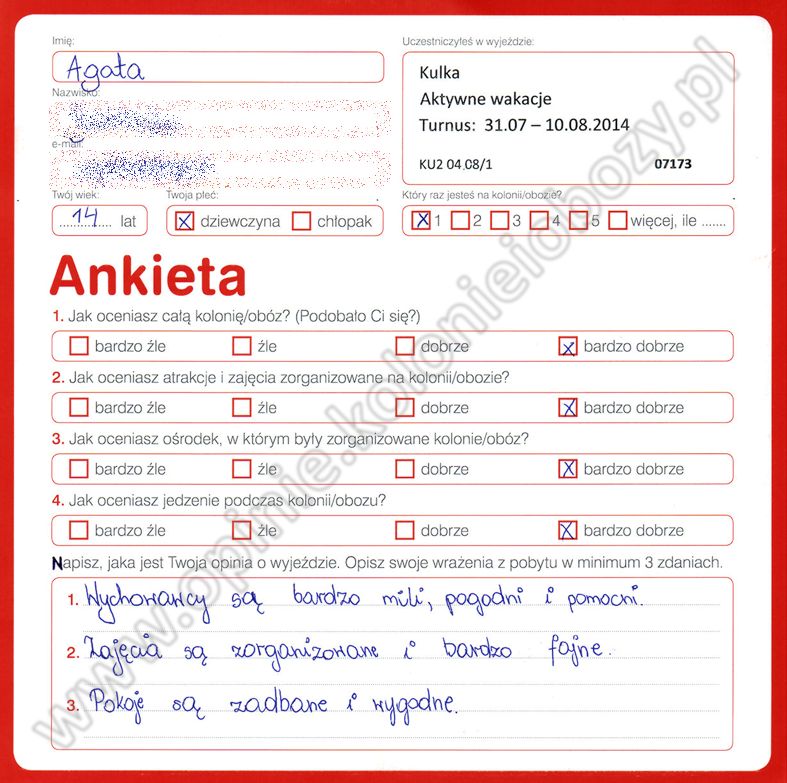 Imię:
Agata
Nazwisko:
e-mail:
Twój wiek:
14 lat
Twoja płeć:
dziewczyna chłopak
Uczestniczyłeś w wyjeździe:
Kulka
Aktywne wakacje
Turnus: 31.07 – 10.08.2014
KU2 04.08/1 07173
Który raz jesteś na kolonii/obozie?
1 2 3 4 5 więcej, ile .......
Ankieta
1. Jak oceniasz całą kolonię/obóz? (Podobało Ci się?)
bardzo źle źle dobrze bardzo dobrze
2. Jak oceniasz atrakcje i zajęcia zorganizowane na kolonii/obozie?
bardzo źle źle dobrze bardzo dobrze
3. Jak oceniasz ośrodek, w którym były zorganizowane kolonie/obóz?
bardzo źle źle dobrze bardzo dobrze
4. Jak oceniasz jedzenie podczas kolonii/obozu?
bardzo źle źle dobrze bardzo dobrze
Napisz, jaka jest Twoja opinia o wyjeździe. Opisz swoje wrażenia z pobytu w minimum 3 zdaniach.
1. Wychowawcy są bardzo mili, pogodni i pomocni.
2. Zajęcia są zorganizowane i bardzo fajne.
3. Pokoje są zadbane i wygodne.
www.opinie.kolonieiobozy.pl